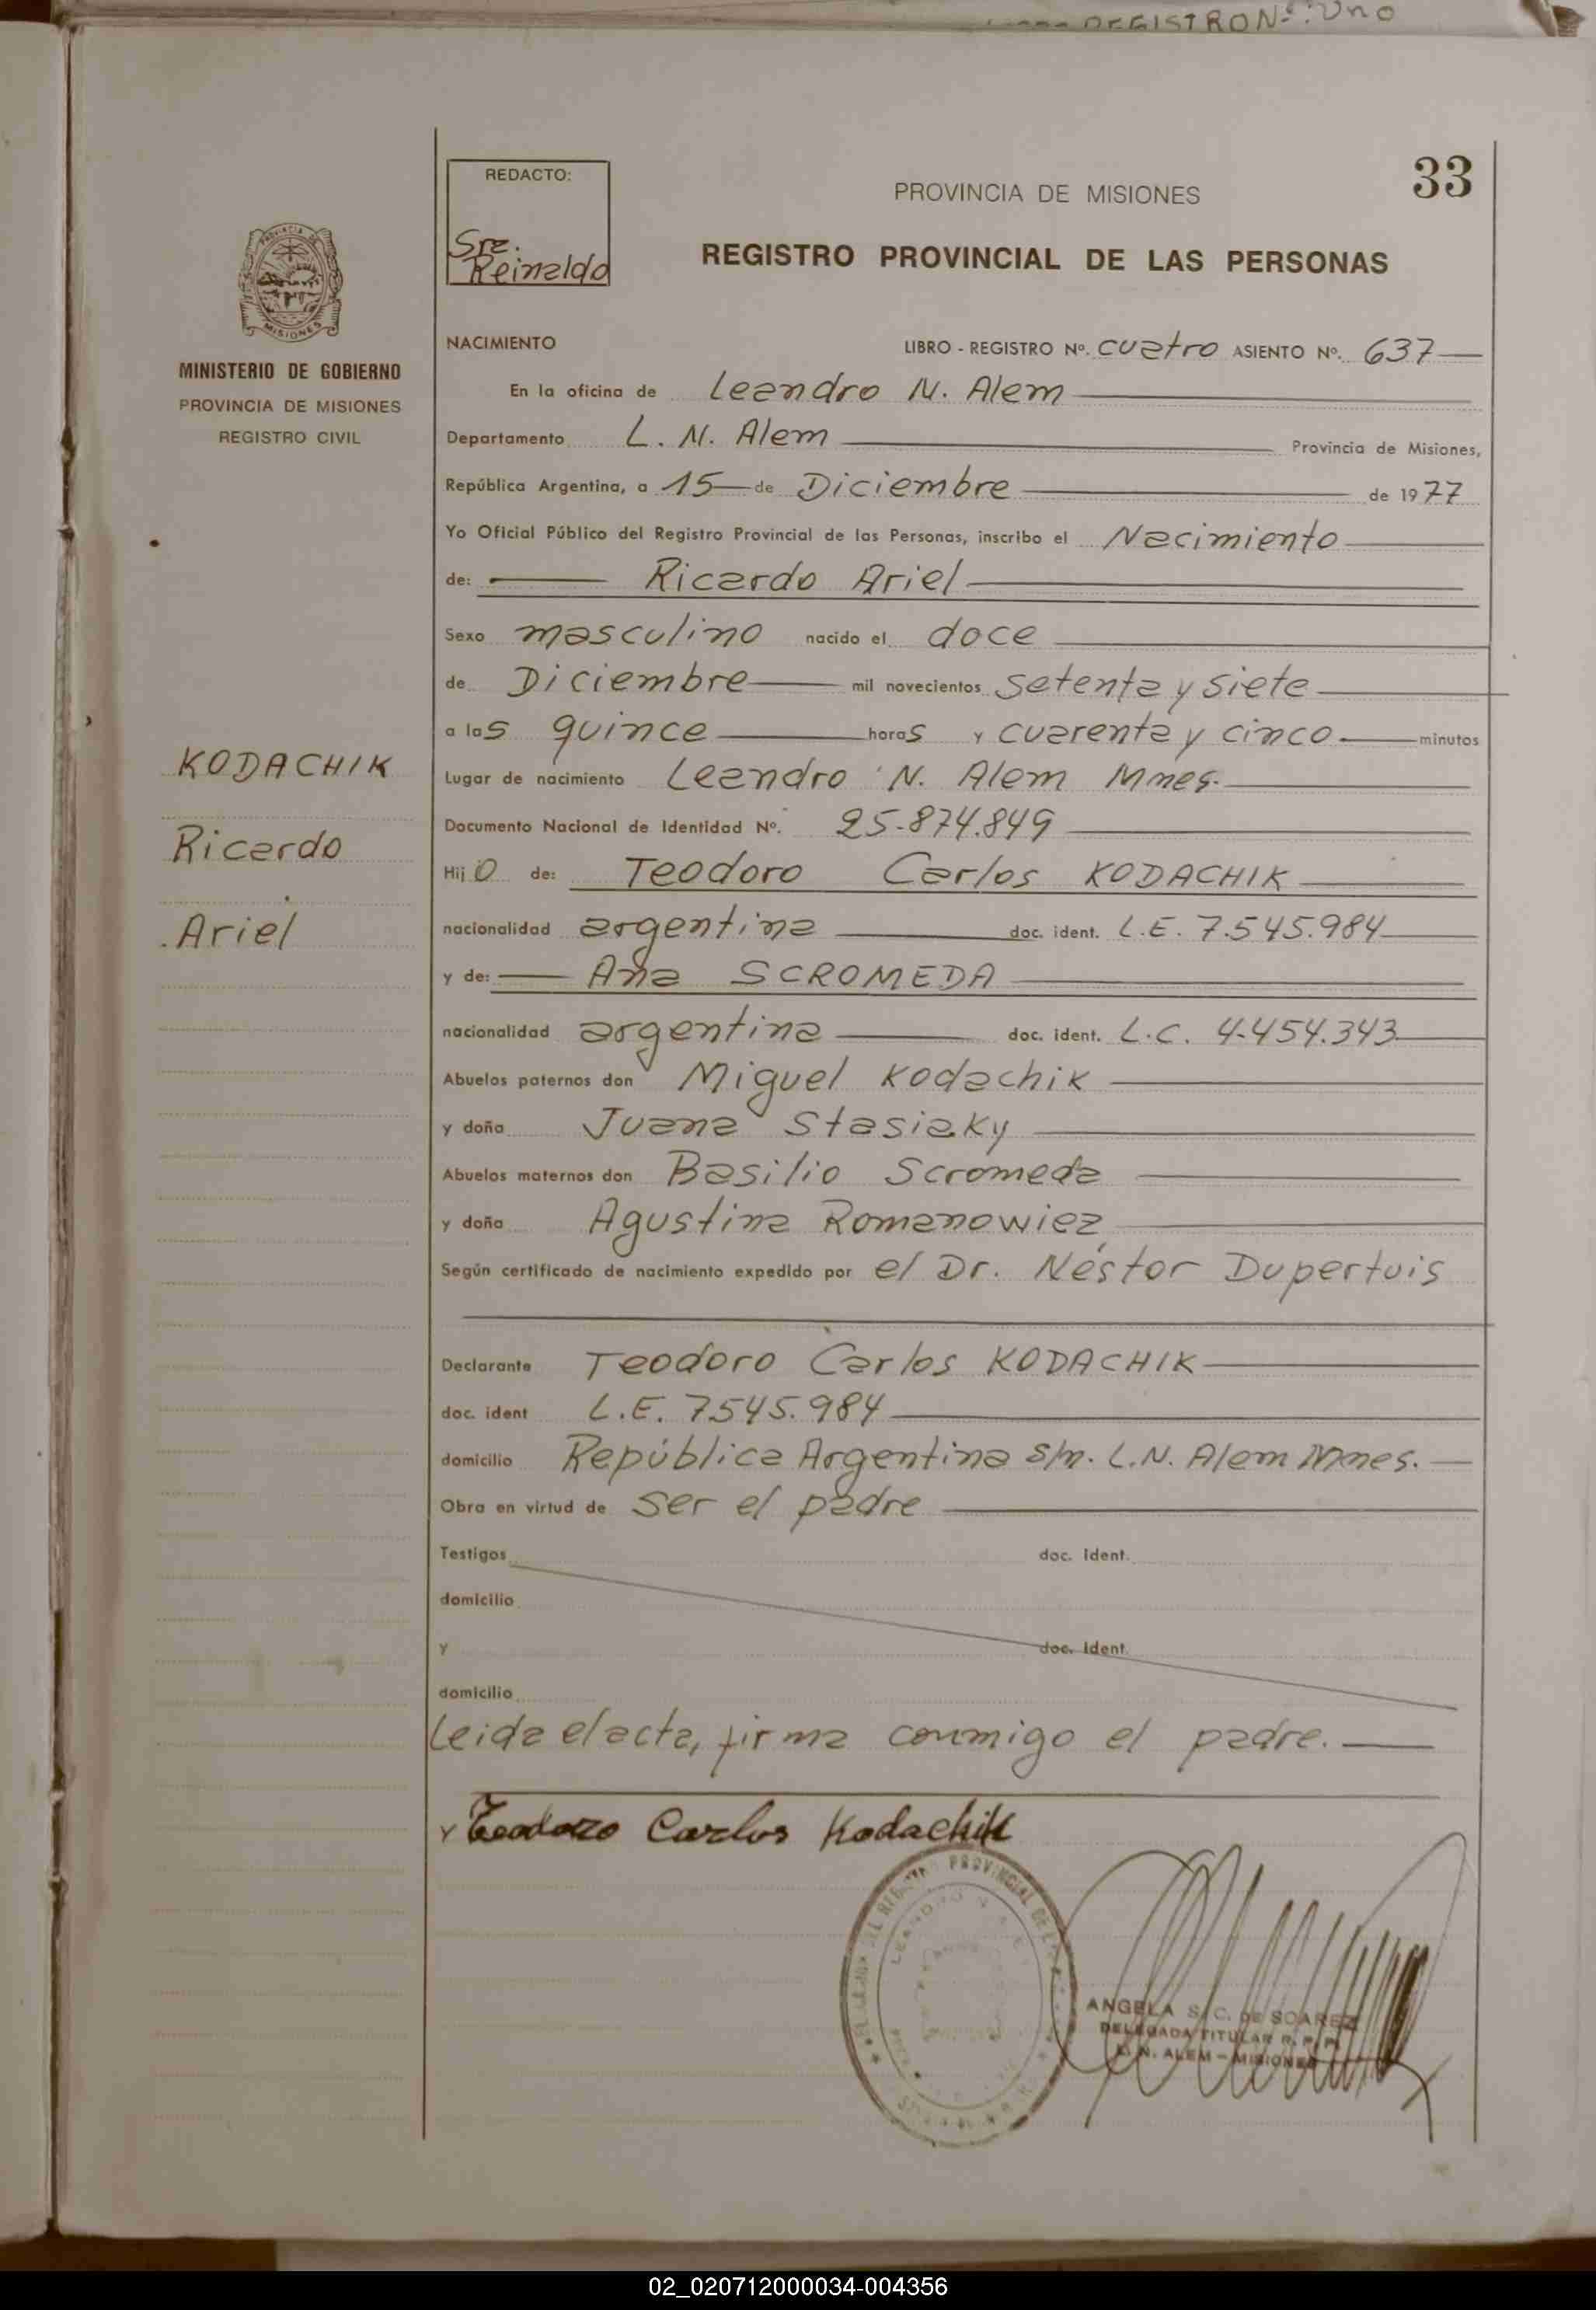 REGISTRO Nº: Uno
33
REDACTO:
Sra. Reinaldo
PROVINCIA DE MISIONES
REGISTRO PROVINCIAL DE LAS PERSONAS
MISIONES
MINISTERIO DE GOBIERNO
PROVINCIA DE MISIONES
REGISTRO CIVIL
KODACHIK
Ricardo
Ariel
NACIMIENTO LIBRO - REGISTRO Nº. cuatro ASIENTO Nº. 637
En la oficina de Leandro N. Alem
Departamento L. N. Alem Provincia de Misiones,
República Argentina, a 15 de Diciembre de 1977
Yo Oficial Público del Registro Provincial de las Personas, inscribo el Nacimiento
de: Ricardo Ariel
Sexo masculino nacido el doce
de Diciembre mil novecientos setenta y siete
a las quince horas y cuarenta y cinco minutos
Lugar de nacimiento Leandro N. Alem Mnes.
Documento Nacional de Identidad Nº. 25.874.849
Hijo de: Teodoro Carlos KODACHIK
nacionalidad argentina doc. ident. L.E. 7.545.984
y de: Ana SCROMEDA
nacionalidad argentina doc. ident. L.C. 4.454.343
Abuelos paternos don Miguel Kodachik
y doña Juana Stasiaky
Abuelos maternos don Basilio Scromeda
y doña Agustina Romanowiez
Según certificado de nacimiento expedido por el Dr. Néstor Dupertuis
Declarante Teodoro Carlos KODACHIK
doc. ident L.E. 7545.984
domicilio República Argentina s/n. L.N. Alem Mnes.
Obra en virtud de ser el padre
Testigos doc. ident.
domicilio
y doc. ident.
domicilio
Leida el acta, firma conmigo el padre.
y Teodoro Carlos Kodachik
ANGELA S. C. DE SOAREZ
DELEGADA TITULAR R. P. P.
L. N. ALEM - MISIONES
02_020712000034-004356